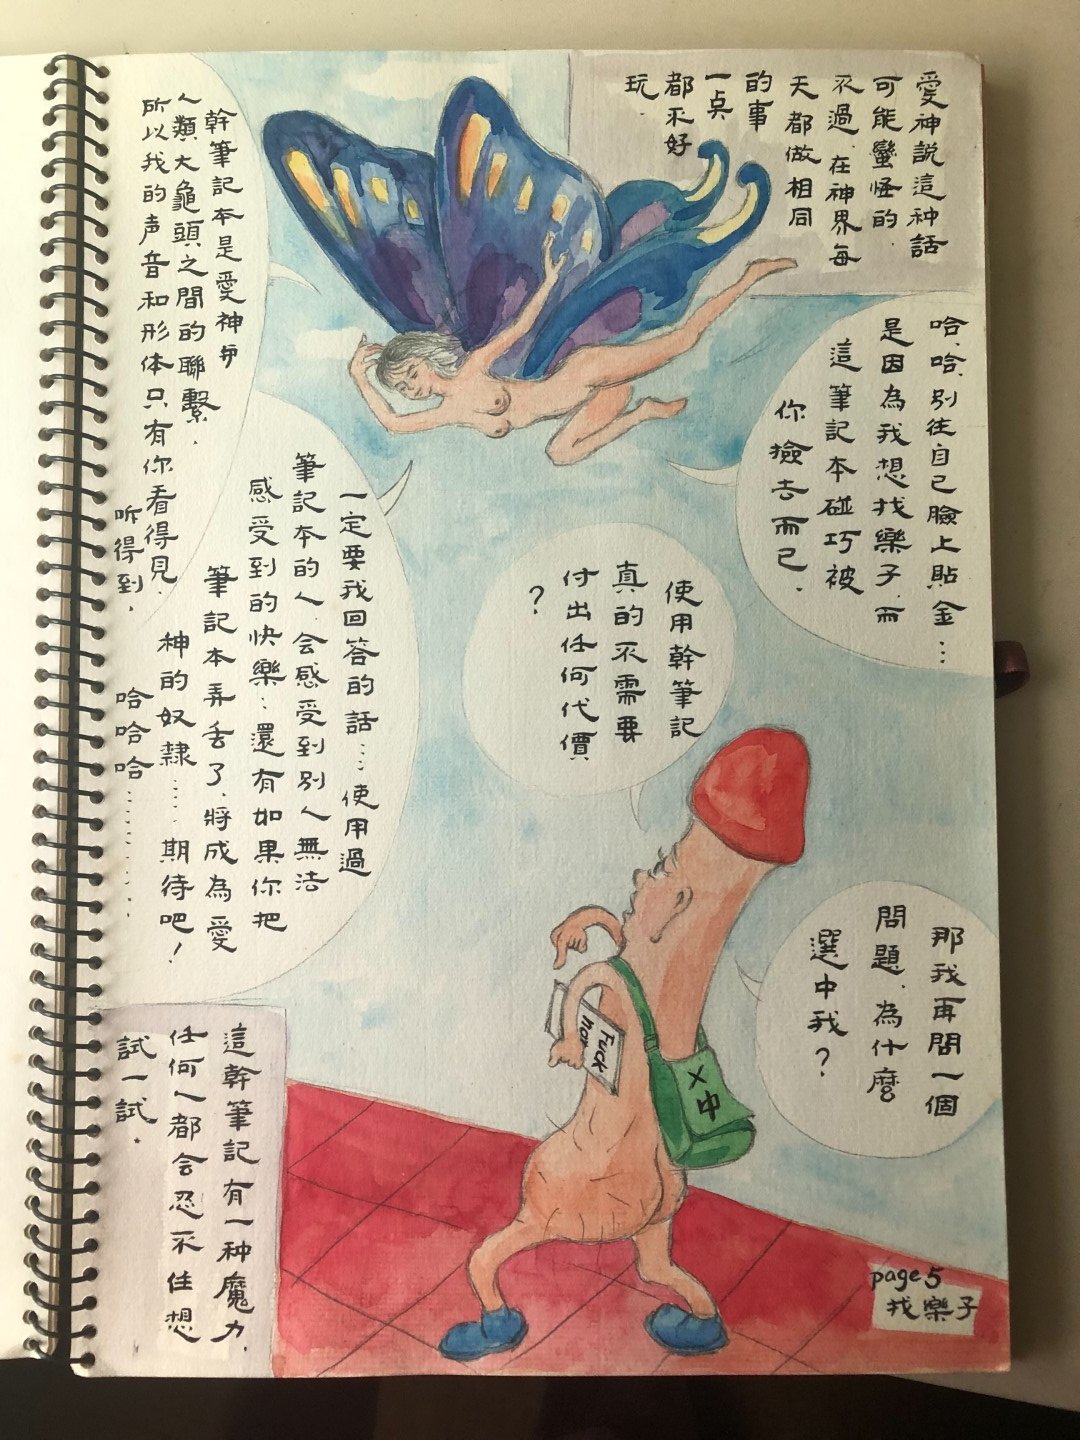 愛神説這种話
可能蠻怪的.
不過.在神界每
天都做相同
的事
一点
都不好
玩
哈.哈.別往自己臉上貼金…
是因為我想找樂子.而
這筆記本碰巧被
你撿去而已.
幹筆記本是愛神与
人類大龜頭之間的聯繫.
所以我的声音和形体只有你看得見.
听得到.
使用幹筆記
真的不需要
付出任何代價
?
一定要我回答的話…使用過
筆記本的人.会感受到別人無法
感受到的快樂…還有如果你把
筆記本弄丢了.將成為愛
神的奴隸……期待吧!
哈哈哈…………
那我再問一個
問題.為什麼
選中我?
Fuck
not
X中
這幹筆記有一种魔力.
任何人都会忍不住想
試一試.
page 5
找樂子